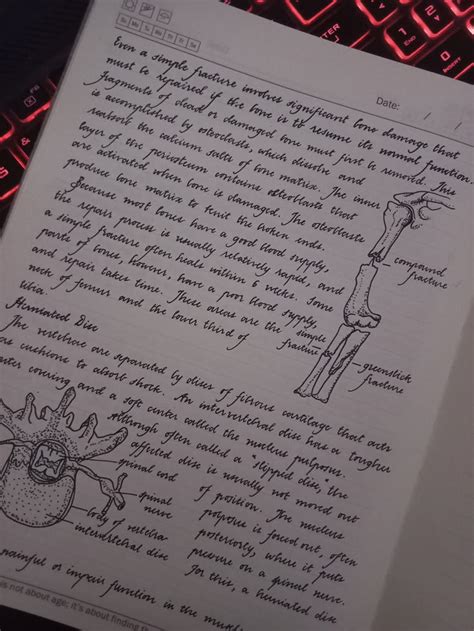 Su Mo Tu We Th Fr Sa
Date: / /
Even a simple fracture involves significant bone damage that
must be repaired if the bone is to resume its normal function.
Fragments of dead or damaged bone must first be removed. This
is accomplished by osteoclasts, which dissolve and
reabsorb the calcium salts of bone matrix. The inner
layer of the periosteum contains osteoblasts that
are activated when bone is damaged. The osteoblasts
produce bone matrix to knit the broken ends.
Because most bones have a good blood supply,
the repair process is usually relatively rapid, and
a simple fracture often heals within 6 weeks. Some
parts of bones, however, have a poor blood supply,
and repair takes time. These areas are the
neck of femur and the lower third of
tibia.
compound
fracture
simple
fracture
greenstick
fracture
Herniated Disc
The vertebrae are separated by discs of fibrous cartilage that acts
as cushions to absorb shock. An intervertebral disc has a tougher
outer covering and a soft center called the nucleus pulposus.
Although often called a "slipped disc," the
affected disc is usually not moved out
of position. The nucleus
pulposus is forced out, often
posteriorly, where it puts
pressure on a spinal nerve.
For this, a herniated disc
spinal cord
spinal
nerve
body of vertebra
intervertebral disc
painful or impair function in the
is not about age; it's about finding